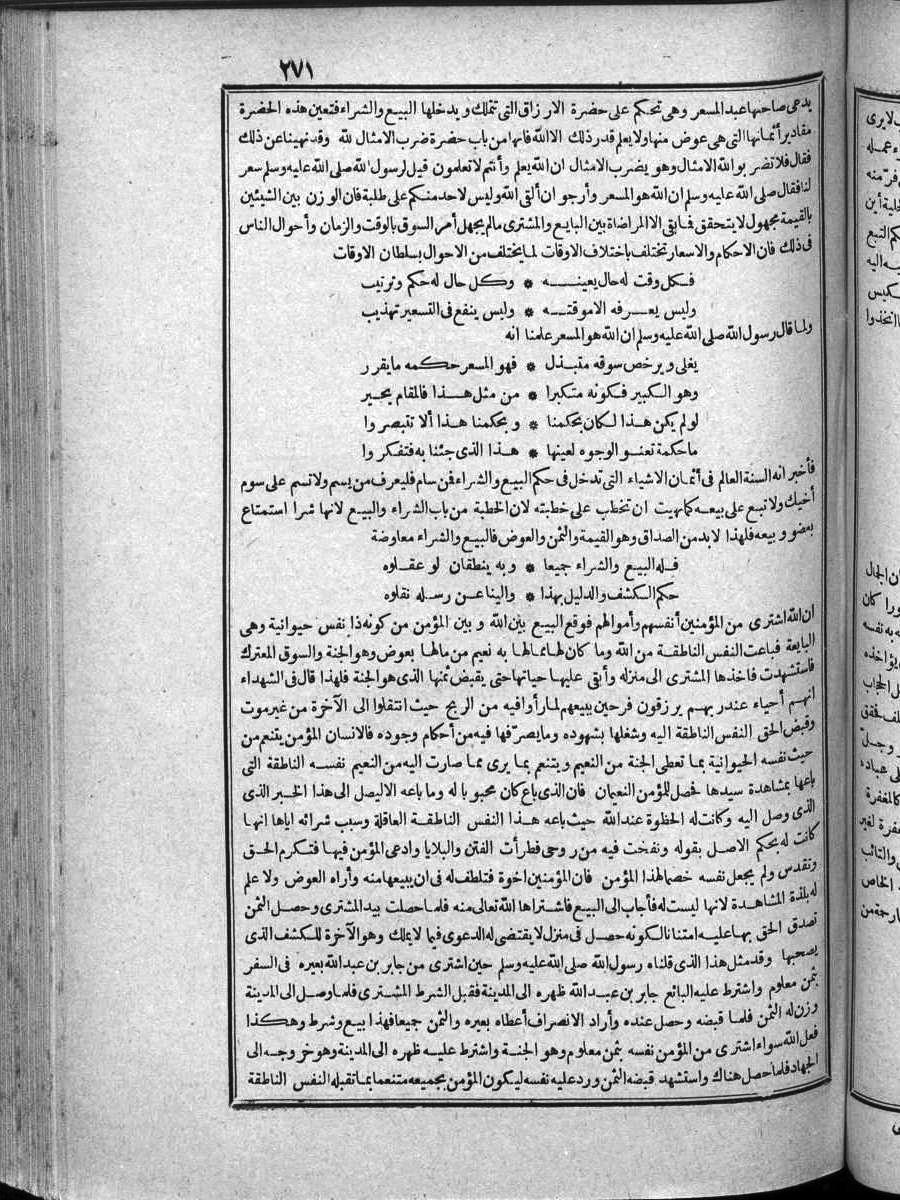 ٢٧١
يدعى صاحبها عبد المسعر وهى تحكم على حضرة الارزاق التى تتملك ويدخلها البيع والشراء فتعين هذه الحضرة
مقادير أثمانها التى هى عوض منها ولا يعلم قدر ذلك الا الله فانها من باب حضرة ضرب الامثال لله وقد نهينا عن ذلك
فقال فلا تضربوا لله الامثال وهو يضرب الامثال ان الله يعلم وأنتم لا تعلمون قيل لرسول الله صلى الله عليه وسلم سعر
لنا فقال صلى الله عليه وسلم ان الله هو المسعر وأرجو ان ألقى الله وليس لاحد منكم على طلبة فان الوزن بين الشيئين
بالقيمة مجهول لا يتحقق فما بقى الا المراضاة بين البايع والمشترى مالم يجهل أمر السوق بالوقت والزمان وأحوال الناس
فى ذلك فان الاحكام والاسعار تختلف باختلاف الاوقات لما يختلف من الاحوال بسلطان الاوقات
فكل وقت له حال يعينه * وكل حال له حكم وترتيب
وليس يعرفه الا موقته * وليس ينفع فى التسعير تهذيب
ولما قال رسول الله صلى الله عليه وسلم ان الله هو المسعر علمنا انه
يغلى ويرخص سوقه متبذل * فهو المسعر حكمه ما يقرر
وهو الكبير فكونه متكبرا * من مثل هذا فالمقام يحير
لو لم يكن هذا لكان بحكمنا * وبحكمنا هذا ألا تتبصروا
ما حكمة تعنو الوجوه لعينها * هذا الذى جئنا به فتفكروا
فأخبر انه السنة العالم فى أثمان الاشياء التى تدخل فى حكم البيع والشراء فمن سام فليعرف من يسم ولا تسم على سوم
أخيك ولا تبع على بيعه كما نهيت ان تخطب على خطبته لان الخطبة من باب الشراء والبيع لانها شرا استمتاع
بعضو وبيعه فلهذا لا بد من الصداق وهو القيمة والثمن والعوض فالبيع والشراء معاوضة
فله البيع والشراء جميعا * وبه ينطقان لو عقلوه
حكم الكشف والدليل بهذا * والينا عن رسله نقلوه
ان الله اشترى من المؤمنين أنفسهم وأموالهم فوقع البيع بين الله وبين المؤمن من كونه ذا نفس حيوانية وهى
البايعة فباعت النفس الناطقة من الله وما كان لها مما لها به نعيم من مالها بعوض وهو الجنة والسوق المعترك
فاستشهدت فاخذها المشترى الى منزله وأبقى عليها حياتها حتى يقبض ثمنها الذى هو الجنة فلهذا قال فى الشهداء
انهم أحياء عند ربهم يرزقون فرحين ببيعهم لما رأوا فيه من الربح حيث انتقلوا الى الآخرة من غير موت
وقبض الحق النفس الناطقة اليه وشغلها بشهوده وما يصرفها فيه من أحكام وجوده فالانسان المؤمن يتنعم من
حيث نفسه الحيوانية بما تعطى الجنة من النعيم ويتنعم بما يرى مما صارت اليه من النعيم نفسه الناطقة التى
باعها بمشاهدة سيدها فحصل للمؤمن النعيمان فان الذى باع كان محبوبا له وما باعه الا ليصل الى هذا الخير الذى
الذى وصل اليه وكانت له الحظوة عند الله حيث باعه هذا النفس الناطقة العاقلة وسبب شرائه اياها انها
كانت له بحكم الاصل بقوله ونفخت فيه من روحى فطرأت الفتن والبلايا وادعى المؤمن فيها فتكرم الحق
وتقدس ولم يجعل نفسه خصما لهذا المؤمن فان المؤمنين اخوة فتلطف له فى ان يبيعها منه وأراه العوض ولا علم
له بلذة المشاهدة لانها ليست له فأجاب الى البيع فاشتراها الله تعالى منه فلما حصلت بيد المشترى وحصل الثمن
تصدق الحق بها عليه امتنانا لكونه حصل فى منزل لا يقتضى له الدعوى فيما لا يملك وهو الآخرة للكشف الذى
يصحبها وقد مثل هذا الذى قلناه رسول الله صلى الله عليه وسلم حين اشترى من جابر بن عبد الله بعيره فى السفر
بثمن معلوم واشترط عليه البائع جابر بن عبد الله ظهره الى المدينة فقبل الشرط المشترى فلما وصل الى المدينة
وزن له الثمن فلما قبضه وحصل عنده وأراد الانصراف أعطاه بعيره والثمن جميعا فهذا بيع وشرط وهكذا
فعل الله سواء اشترى من المؤمن نفسه بثمن معلوم وهو الجنة واشترط عليه ظهره الى المدينة وهو خروجه الى
الجهاد فلما حصل هناك واستشهد قبضه الثمن ورد عليه نفسه ليكون المؤمن بجميعه متنعما بما تقبله النفس الناطقة